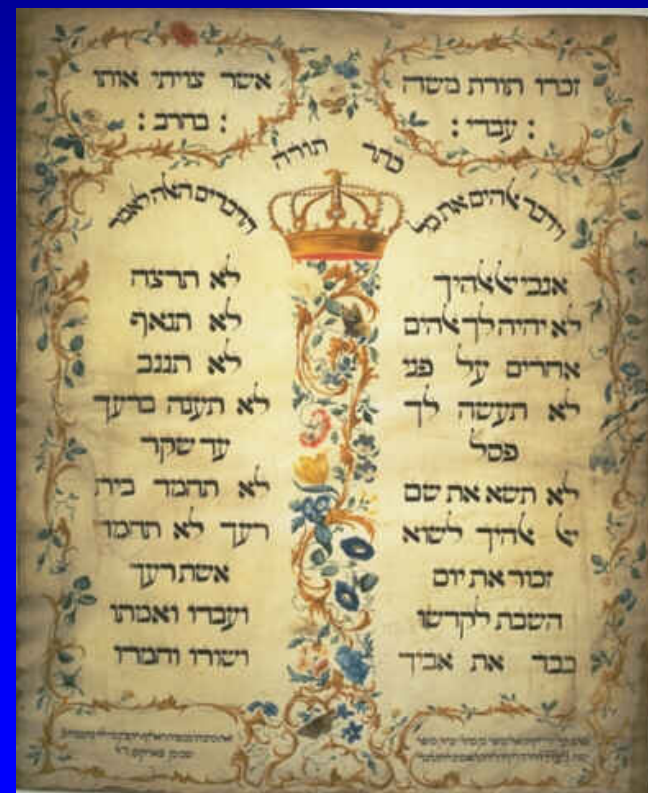 זכרו תורת משה
: עבדי :
אשר צויתי אותו
: בחרב :
כתר תורה
וידבר ﭏהים את כל
הדברים הﭏה לאמר
אנכי יי ﭏהיך
לא יהיה לך ﭏהים
אחרים על פני
לא תעשה לך
פסל
לא תשא את שם
יי ﭏהיך לשוא
זכור את יום
השבת לקדשו
כבד את אביך
לא תרצח
לא תנאף
לא תגנב
לא תענה ברעך
עד שקר
לא תחמד בית
רעך לא תחמד
אשת רעך
ועבדו ואמתו
ושורו וחמרו